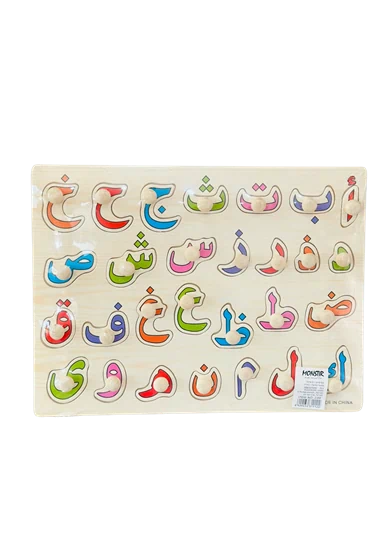 أ ب ت ث ج ح خ
د ذ ر ز س ش ص
ض ط ظ ع غ ف ق
ك ل م ن ه و ي
MONSTIR
IN CHINA